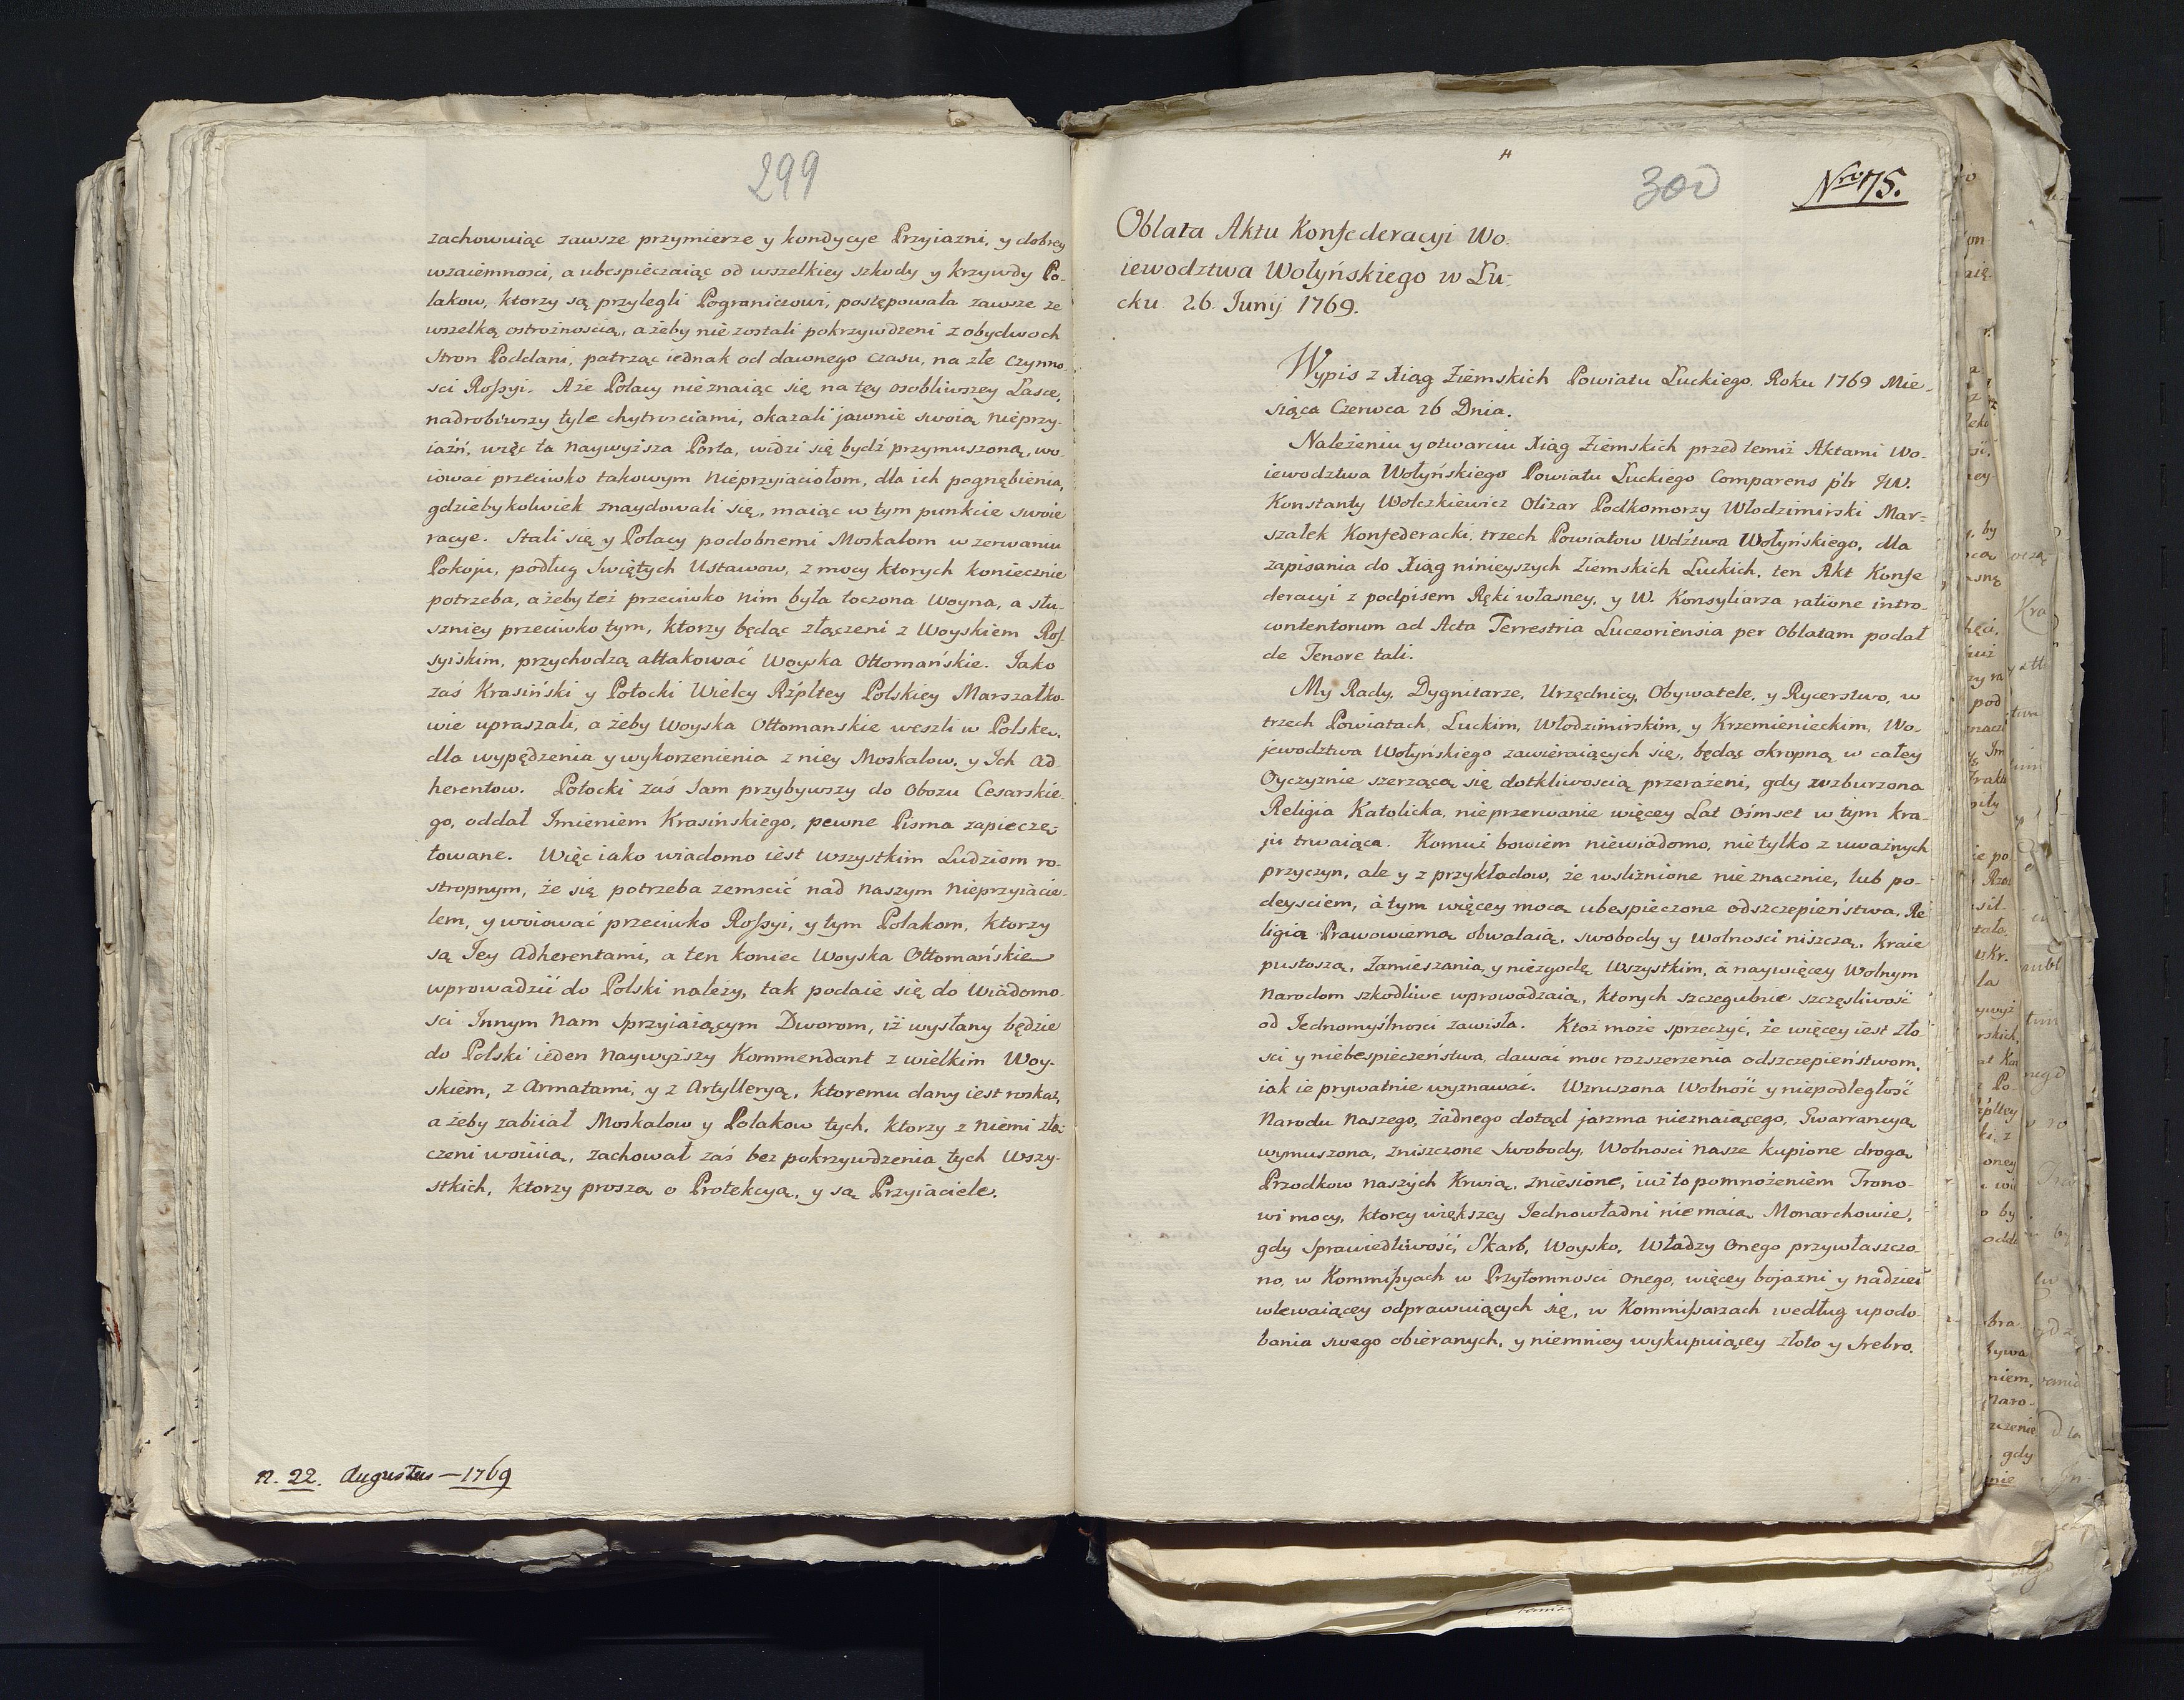 299
zachowuiąc zawsze przymierze y kondycye Przyiazni, y dobrey
wzaiemnosci, a ubespieczaiąc od wszelkiey szkody y krzywdy Po-
lakow, ktorzy są przylegli Pograniczowi, postępowała zawsze ze
wszelką ostrożnoscią, ażeby nie zostali pokrzywdzeni z obydwoch
Stron Poddani, patrząc iednak od dawnego czasu, na złe czynno-
sci Rossyi. Aże Polacy nieznaiąc się na tey osobliwszey Łasce,
nadrobiwszy tyle chytrosciami, okazali jawnie swoią nieprzy-
iaźń, więc ta Naywyższa Porta, widzi się bydź przymuszoną, wo-
iować przeciwko takowym Nieprzyiaciołom, dla ich pognębienia,
gdzieby kolwiek znaydowali się, maiąc w tym punkcie swoie
racye. Stali się y Polacy podobnemi Moskalom w zerwaniu
Pokoju, podług Swiętych Ustawow, z mocy ktorych koniecznie
potrzeba, ażeby też przeciwko nim była toczona Woyna, a słu-
szniey przeciwko tym, ktorzy będąc złączeni z Woyskiem Ros-
syiskim, przychodzą attakować Woyska Ottomańskie. Iako
zaś Krasiński y Potocki Wielcy Rzpltey Polskiey Marszałko-
wie upraszali, a żeby Woyska Ottomanskie weszli w Polskę,
dla wypędzenia y wykorzenienia z niey Moskalow, y Ich Ad-
herentow. Potocki zaś sam przybywszy do Obozu Cesarskie-
go, oddał Imieniem Krasinskiego, pewne Pisma zapieczę-
towane. Więc iako wiadomo iest wszystkim Ludziom ro-
stropnym, że się potrzeba zemscić nad naszym Nieprzyiacie-
lem, y woiować przeciwko Rossyi, y tym Polakom, ktorzy
są Iey Adherentami, a ten koniec Woyska Ottomańskie
wprowadzić do Polski należy, tak podaie się do Wiadomo-
sci Innym Nam sprzyiaiącym Dworom, iż wysłany będzie
do Polski ieden Naywyższy Kommendant z wielkim Woy-
skiem, z Armatami, y z Artylleryą, ktoremu dany iest roskaz,
a żeby zabiiał Moskalow y Polakow tych, ktorzy z niemi złą-
czeni woiuią, zachował zaś bez pokrzywdzenia tych Wszy-
stkich, ktorzy proszą o Protekcyą, y są Przyiaciele.
n. 22. Augustus — 1769
300
Nro 75.
Oblata Aktu Konfederacyi Wo-
iewodztwa Wołyńskiego w Łu-
cku 26 Junij 1769.
Wypis z Xiąg Ziemskich Powiatu Łuckiego. Roku 1769 Mie-
siąca Czerwca 26 Dnia.
Należeniu y otwarciu Xiąg Ziemskich przed temiż Aktami Wo-
iewodztwa Wołyńskiego Powiatu Łuckiego Comparens plr JW.
Konstanty Wołczkiewicz Olizar Podkomorzy Włodzimirski Mar-
szałek Konfederacki, trzech Powiatow Wdztwa Wołyńskiego, dla
zapisania do Xiąg ninieyszych Ziemskich Łuckich, ten Akt Konfe
deracyi z podpisem Ręki własney, y W. Konsyliarza ratione intro-
contentorum ad Acta Terrestria Luceoriensia per Oblatam podał
de Tenore tali.
My Rady, Dygnitarze, Urzędnicy, Obywatele, y Rycerstwo, w
trzech Powiatach, Łuckim, Włodzimirskim, y Krzemienieckim, Wo-
jewodztwa Wołyńskiego zawieraiących się, będąc okropną w całey
Oyczyznie szerzącą się dotkliwoscią przerażeni, gdy wzburzona
Religia Katolicka, nieprzerwanie więcey Lat Ośmset w tym kra-
ju trwaiąca. Komuż bowiem niewiadomo, nie tylko z uważnych
przyczyn, ale y z przykładow, że wsliznione nieznacznie, lub po-
deysciem, à tym więcey mocą ubespieczone odszczepieństwa, Re
ligią Prawowierną obwalaią, swobody y wolnosci niszczą, kraie
pustoszą, Zamieszania, y niezgodę Wszystkim, a naywięcey Wolnym
Narodom szkodliwe wprowadzaią, ktorych szczegulnie szczęsliwość
od Jednomyślnosci zawisła. Ktoż może sprzeczyć, że więcey iest zło-
sci y niebespieczeństwa, dawać moc rozszerzenia odszczepieństwom,
iak ie prywatnie wyznawać. Wzruszona Wolność y niepodległość
Narodu Naszego, żadnego dotąd jarzma nieznaiącego, Gwarrancyą
wymuszona, zniszczone Swobody, Wolnosci nasze kupione drogą
Przodkow naszych Krwią, zniesione, iuż to pomnożeniem Trono-
wi mocy, ktorey większey Jednowładni nie maią Monarchowie,
gdy sprawiedliwość, Skarb, Woysko, Władzy Onego przywłaszczo-
no, w Kommissyach w Przytomnosci onego, więcey bojazni y nadziei
wlewaiącey odprawuiących się, w Kommissarzach według upodo-
bania swego obieranych, y niemniey wykupuiącey złoto y srebro.